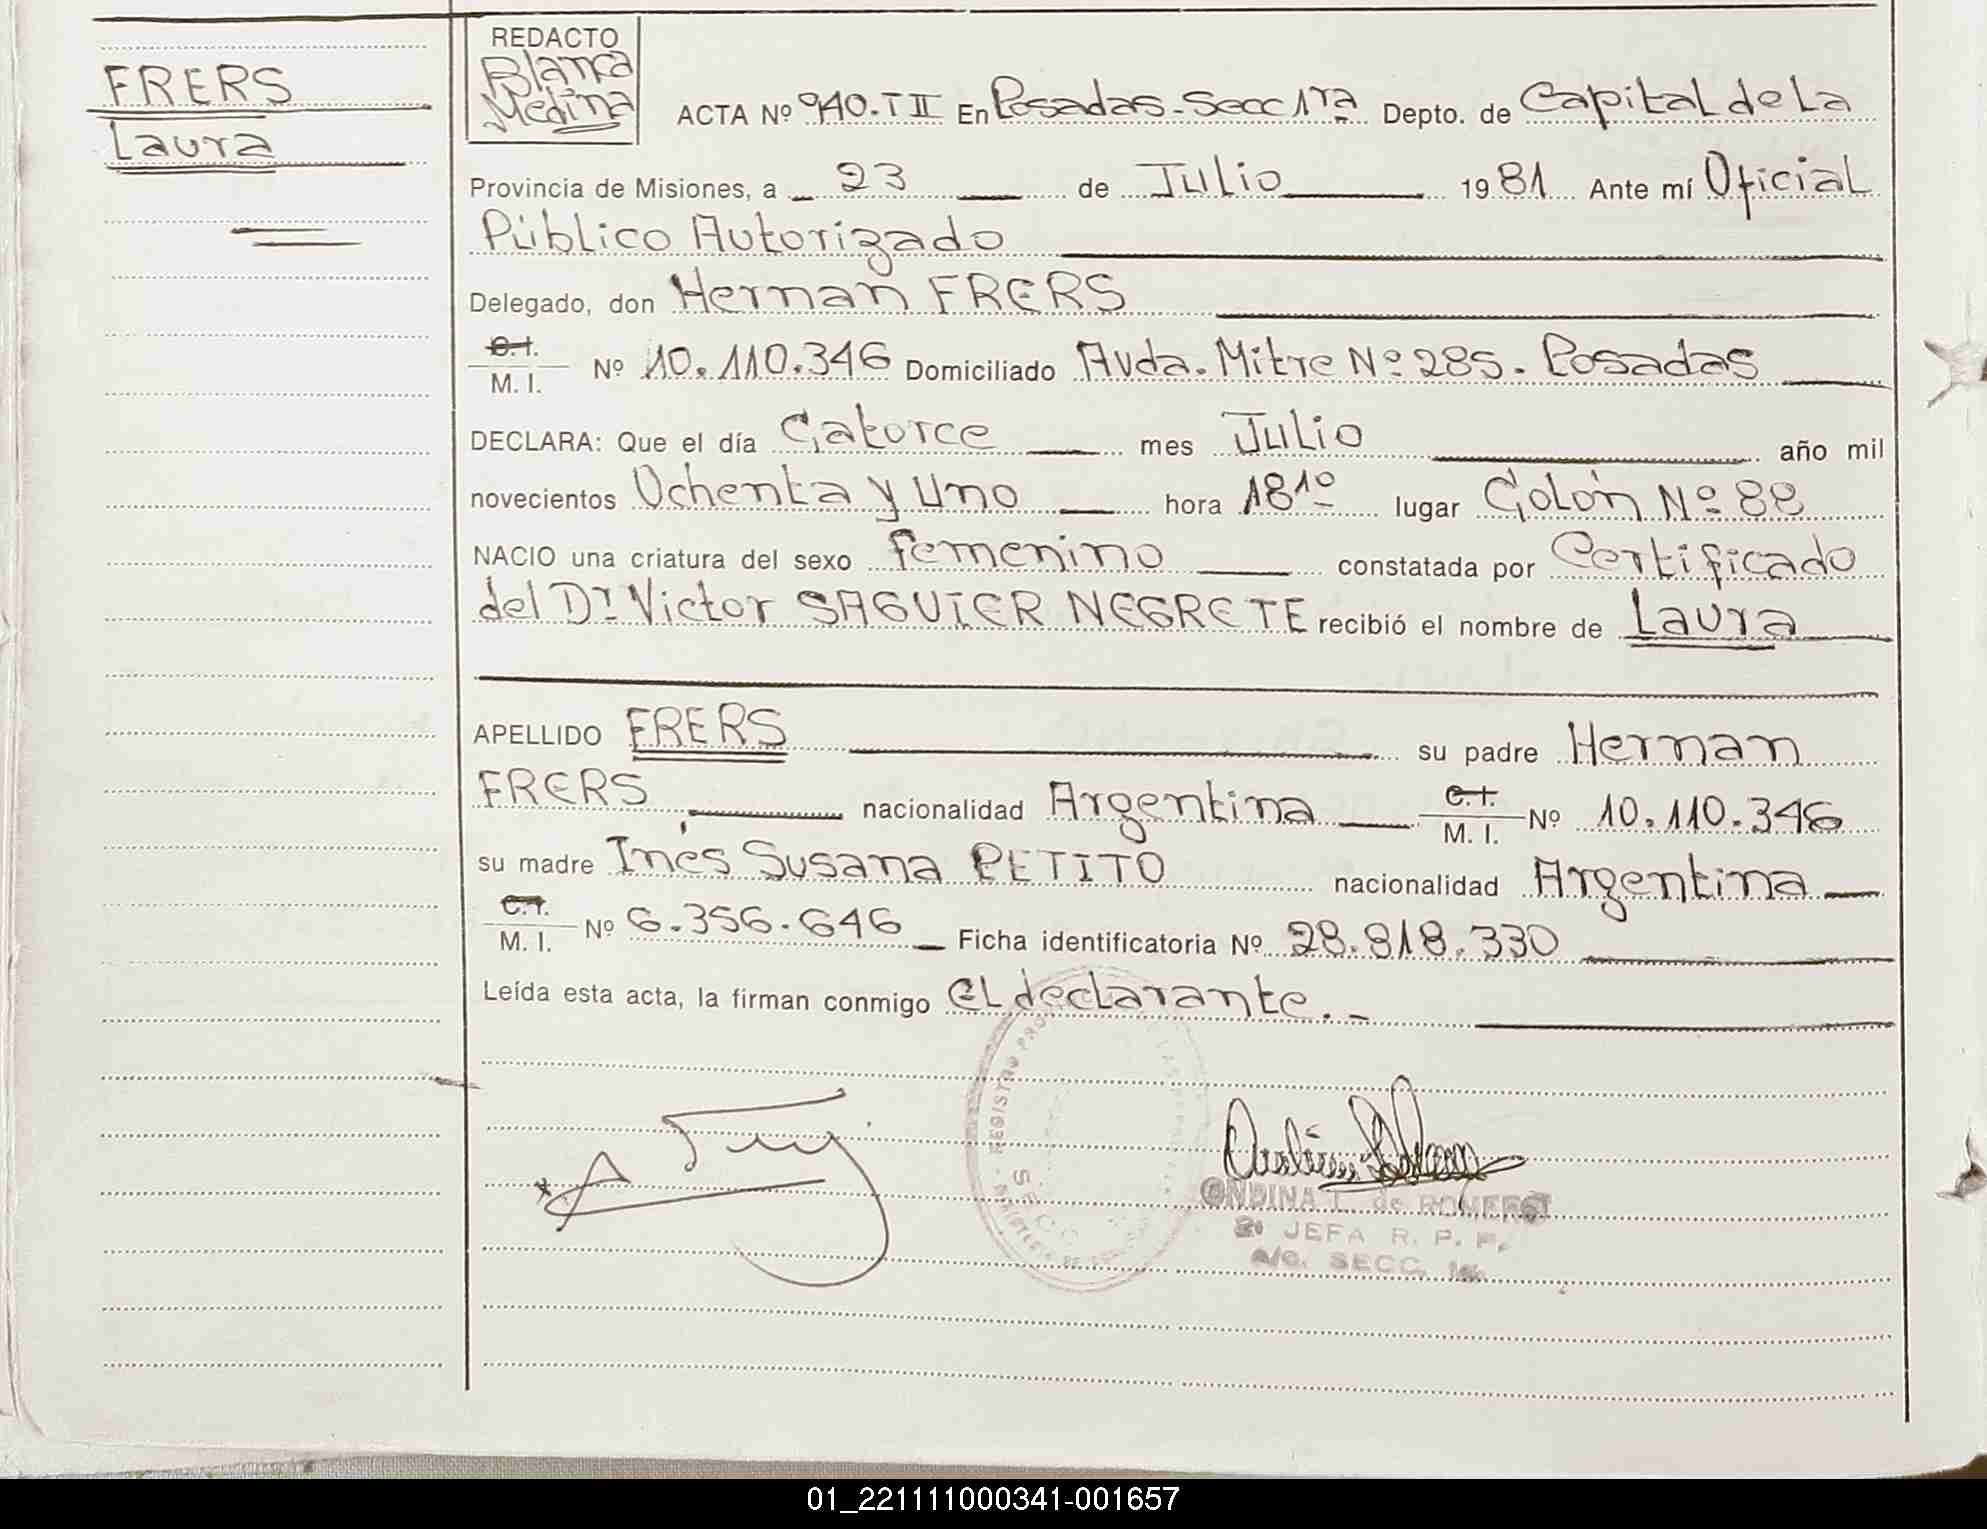 FRERS
Laura
REDACTO
Blanca
Medina
ACTA Nº 940.T II En Posadas-Secc 1ra Depto. de Capital de La
Provincia de Misiones, a 23 de Julio 1981 Ante mí Oficial
Público Autorizado
Delegado, don Hernan FRERS
C.I.
M. I. Nº 10.110.346 Domiciliado Avda. Mitre Nº 285. Posadas
DECLARA: Que el día Catorce mes Julio año mil
novecientos Ochenta y Uno hora 18 10 lugar Colón Nº 88
NACIO una criatura del sexo femenino constatada por Certificado
del Dr. Victor SAGUIER NEGRETE recibió el nombre de Laura
APELLIDO FRERS su padre Hernan
FRERS nacionalidad Argentina C.I. M. I. Nº 10.110.346
su madre Inés Susana PETITO nacionalidad Argentina
C.I.
M. I. Nº 6.356.646 Ficha identificatoria Nº 28.818.330
Leída esta acta, la firman conmigo el declarante.-
REGISTRO
SECC
ONDINA T. de ROMERO
2º JEFA R. P. P.
a/c. SECC. 1a.
01_221111000341-001657